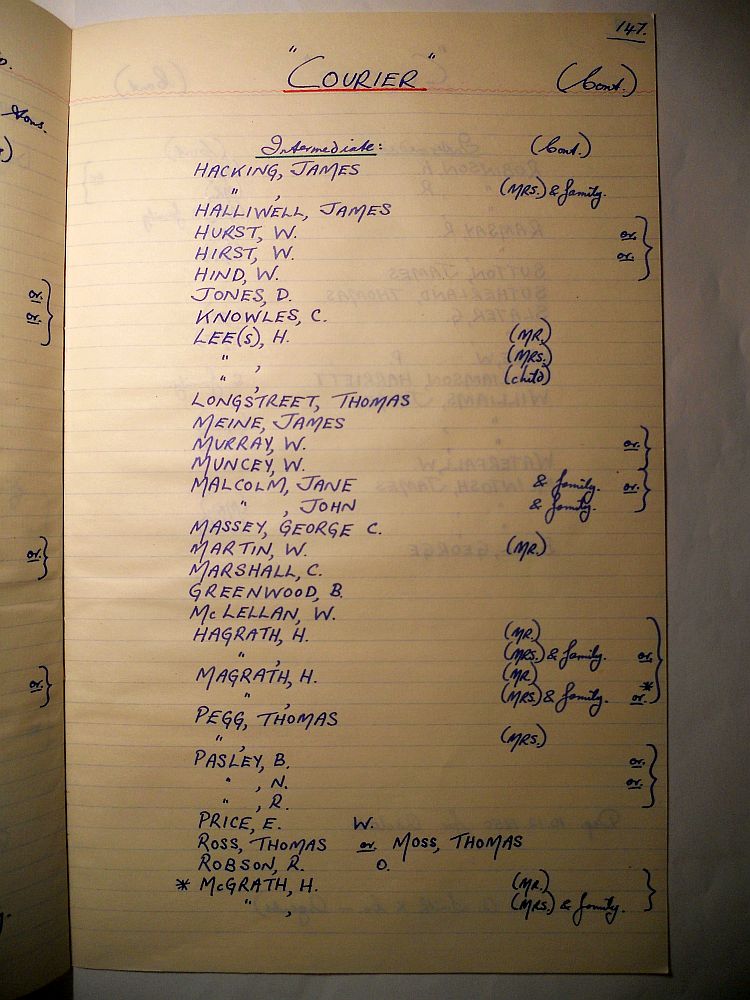 147.
"COURIER" (Cont.)
Intermediate: (Cont.)
HACKING, JAMES
" , (MRS.) & family.
HALLIWELL, JAMES
HURST, W. or.
HIRST, W. or.
HIND, W.
JONES, D.
KNOWLES, C.
LEE(S), H. (MR.)
" , (MRS.)
" , (child)
LONGSTREET, THOMAS
MEINE, JAMES
MURRAY, W. or.
MUNCEY, W.
MALCOLM, JANE & family. or.
" , JOHN & family.
MASSEY, GEORGE C.
MARTIN, W. (MR.)
MARSHALL, C.
GREENWOOD, B.
McLELLAN, W.
HAGRATH, H. (MR.)
" , (MRS.) & family. or.
MAGRATH, H. (MR.)
" , (MRS.) & family. or.*
PEGG, THOMAS
" , (MRS.)
PASLEY, B. or.
" , N. or.
" , R.
PRICE, E. W.
ROSS, THOMAS or. MOSS, THOMAS
ROBSON, R. O.
* McGRATH, H. (MR.)
" , (MRS.) & family.